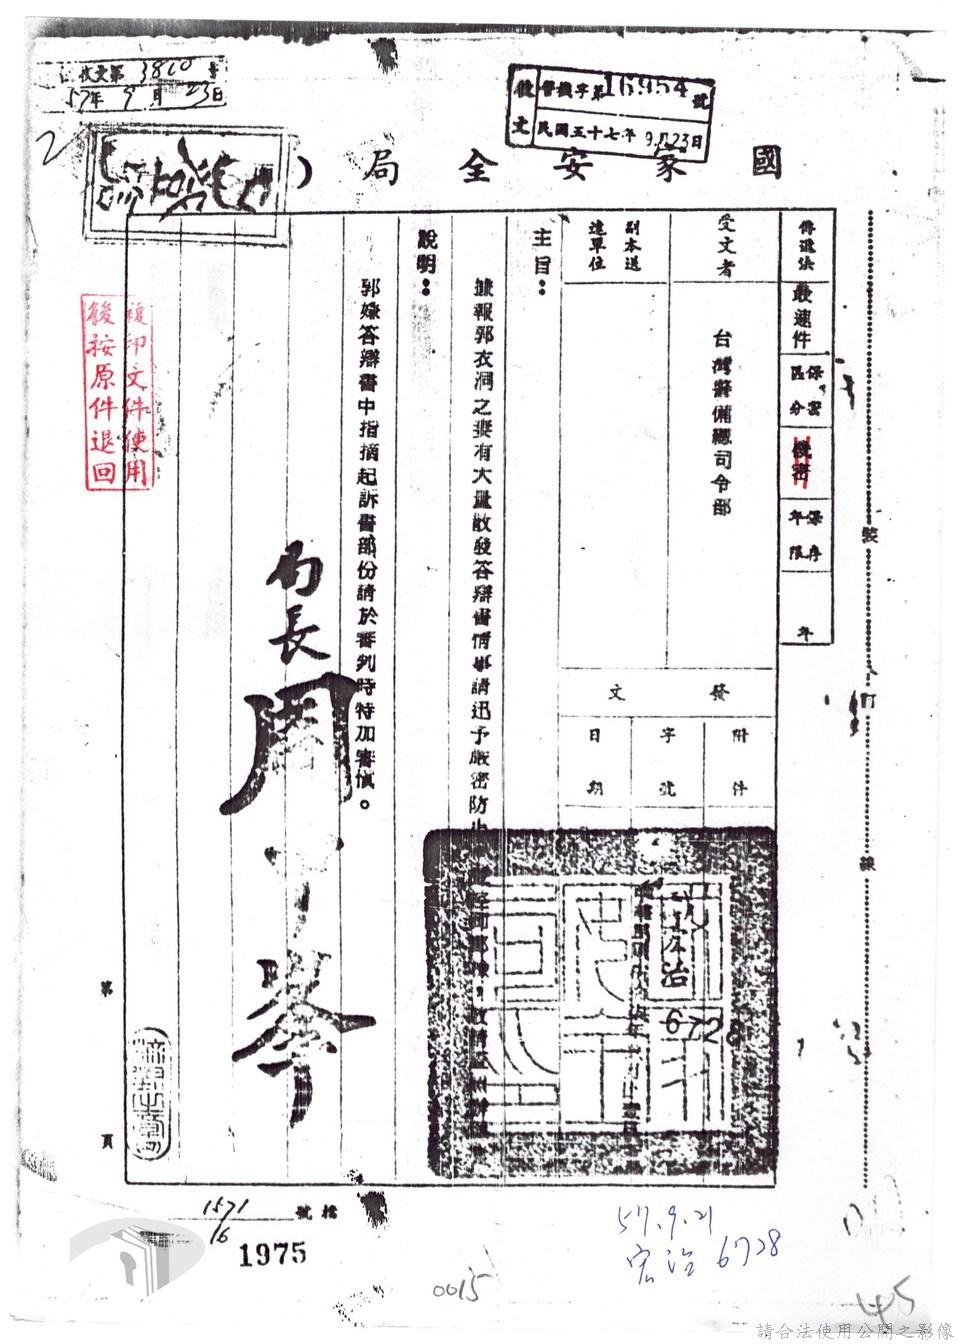 收文第 3810 號
57年 9月 23日
收文
警機字第16954號
民國五十七年 9月23日
國家安全局(
傳遞法
最速件
保密區分
機密
保存年限
年
受文者
台灣警備總司令部
副本送達單位
發文
附件
字號
日期
宏治
6728
主旨：
據報郭衣洞之妻有大量散發答辯書情事請迅予嚴密防止
說明：
郭嫌答辯書中指摘起訴書部份請於審判時特加審慎。
局長周中峯
複印文件使用
後按原件退回
裝
訂
線
第
頁
檔號
1571
16
1975
0015
57.9.21
宏治 6728
45
請合法使用公開之影像